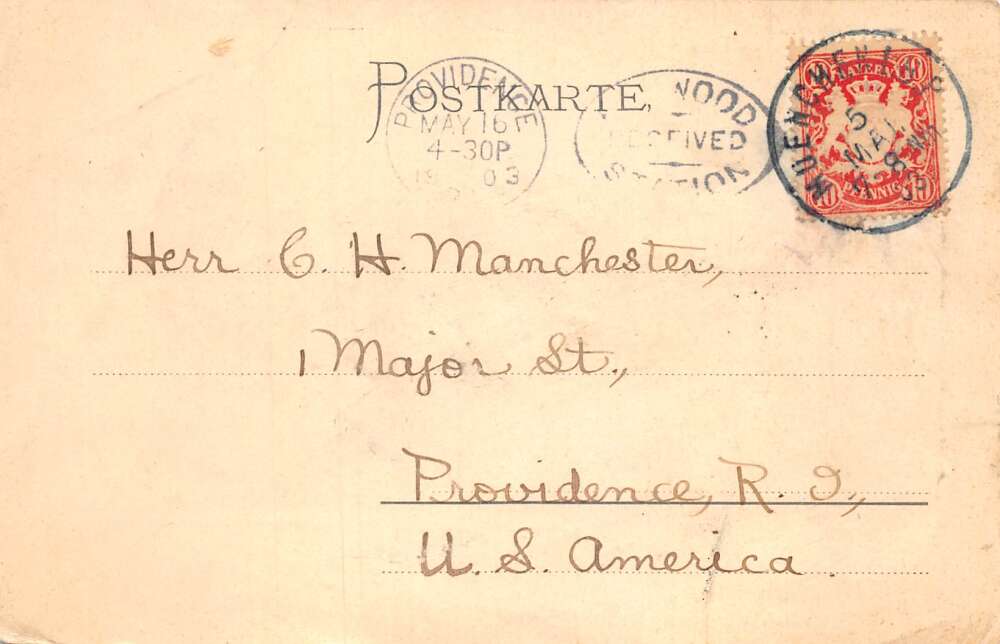 POSTKARTE.
PROVIDENCE
MAY 16
4-30P
1903
WOOD
RECEIVED
STATION
MUENCHEN
5
MAI
8
10 BAYERN 10
10 PFENNIG 10
Herr C. H. Manchester,
1 Major St.,
Providence, R. I.,
U. S. America